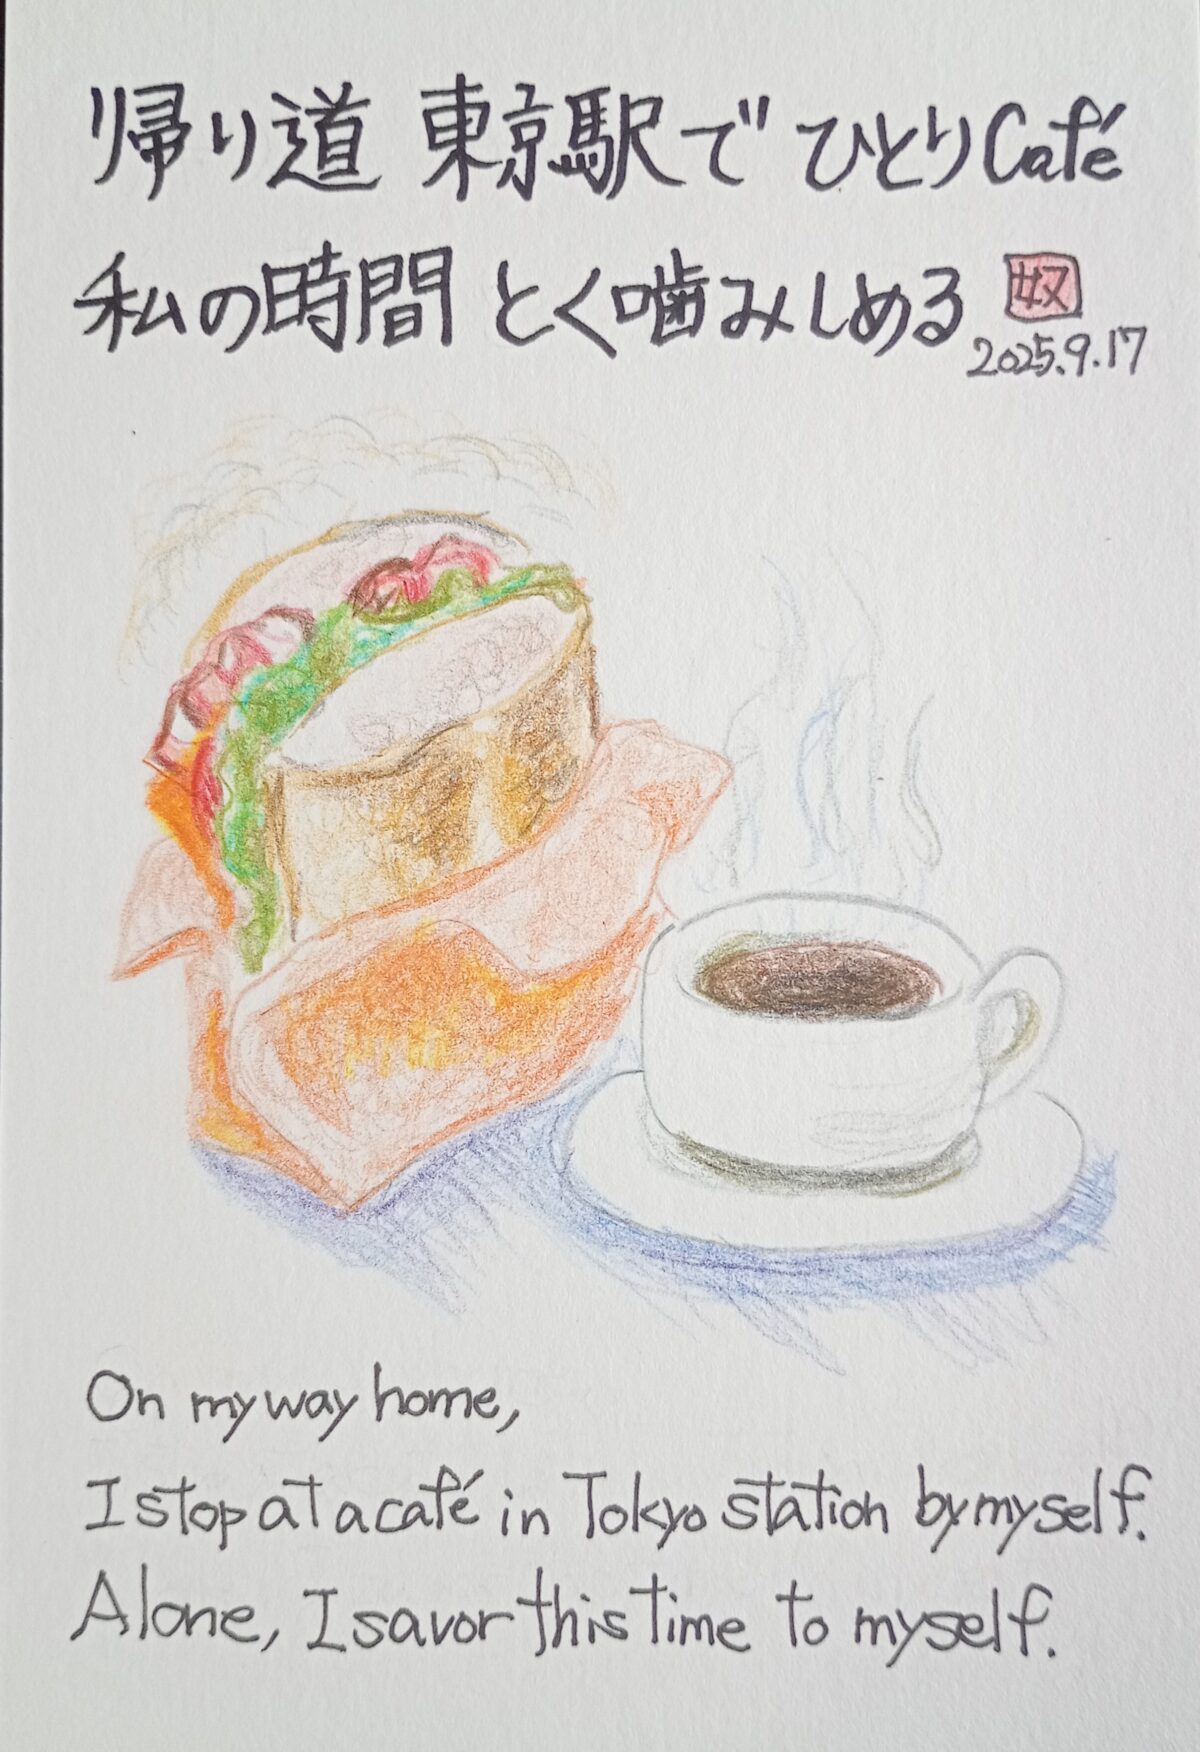 帰り道 東京駅で ひとりCafé
私の時間 とく噛みしめる 奴
2025.9.17
On my way home,
I stop at a café in Tokyo station by myself.
Alone, I savor this time to myself.